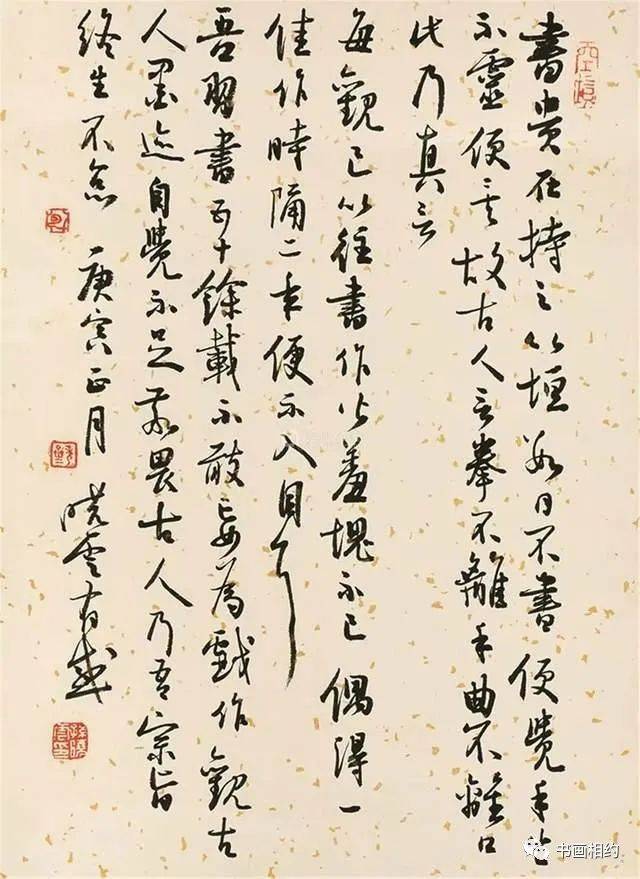 書貴在持之以恒數日不書便覺手
不靈便矣故古人言拳不離手曲不離口
此乃真言
每觀已以往書作必羞愧不已偶得一
佳作時隔二年便不入目耳
吾習書五十餘載不敢妄為戲作觀古
人墨迹自覺不足敬畏古人乃吾宗旨
終生不怠 庚寅正月 曉雲有感
孫曉雲印
书画相约